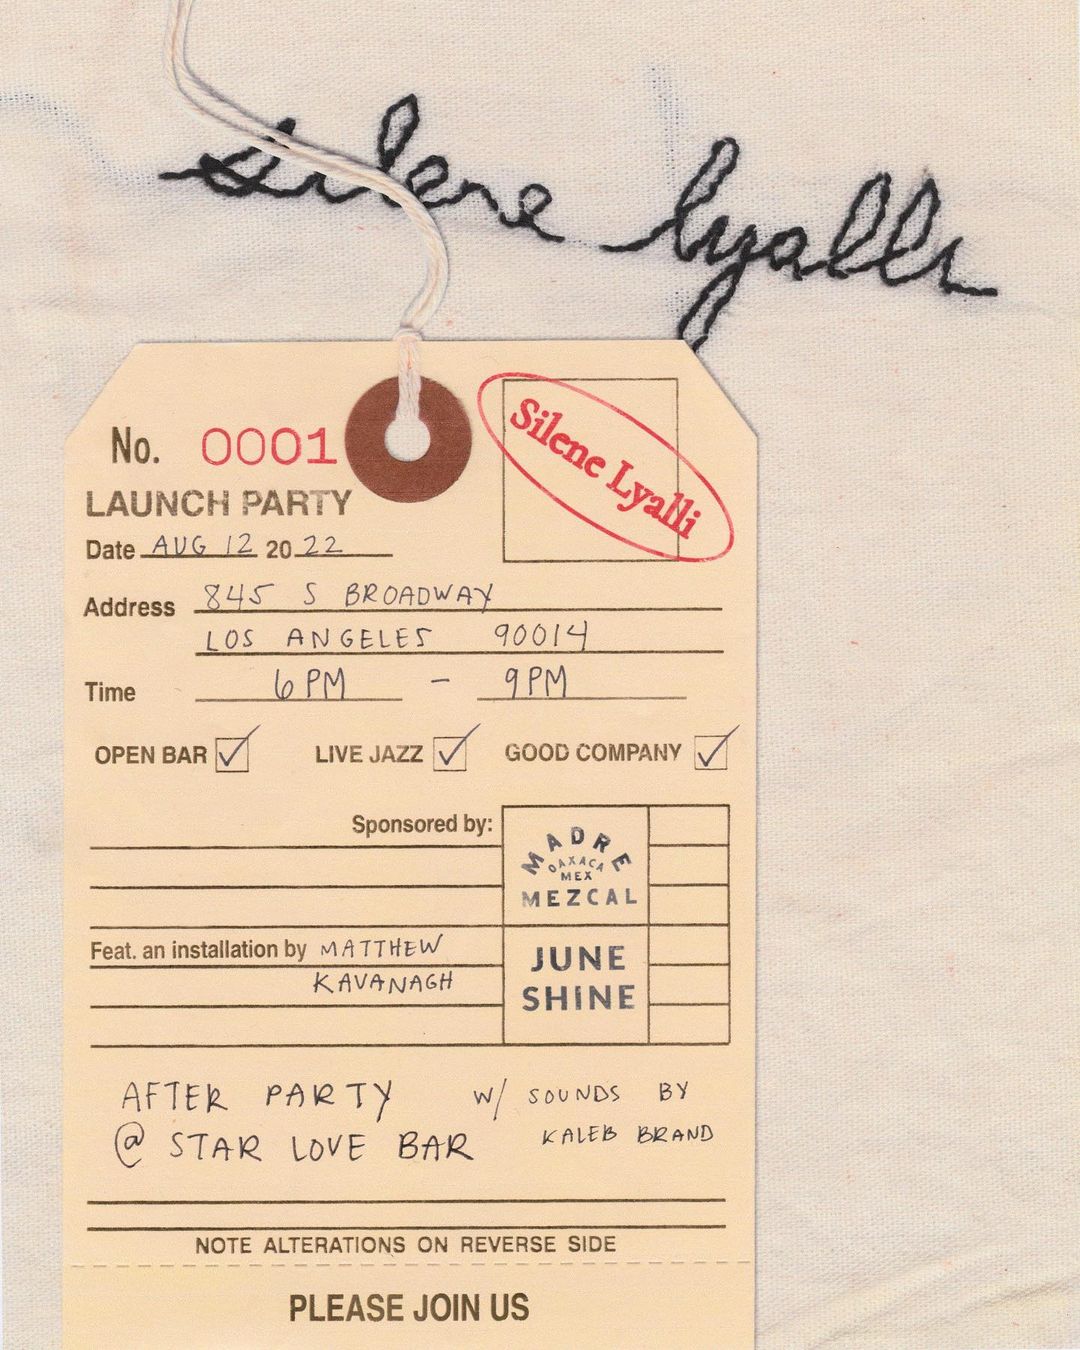 silene lyalli
No. 0001
Silene Lyalli
LAUNCH PARTY
Date AUG 12 20 22
Address 845 S BROADWAY
LOS ANGELES 90014
Time 6 PM - 9 PM
OPEN BAR LIVE JAZZ GOOD COMPANY
Sponsored by:
MADRE
OAXACA
MEX
MEZCAL
Feat. an installation by MATTHEW
KAVANAGH
JUNE
SHINE
AFTER PARTY W/ SOUNDS BY
@ STAR LOVE BAR KALEB BRAND
NOTE ALTERATIONS ON REVERSE SIDE
PLEASE JOIN US